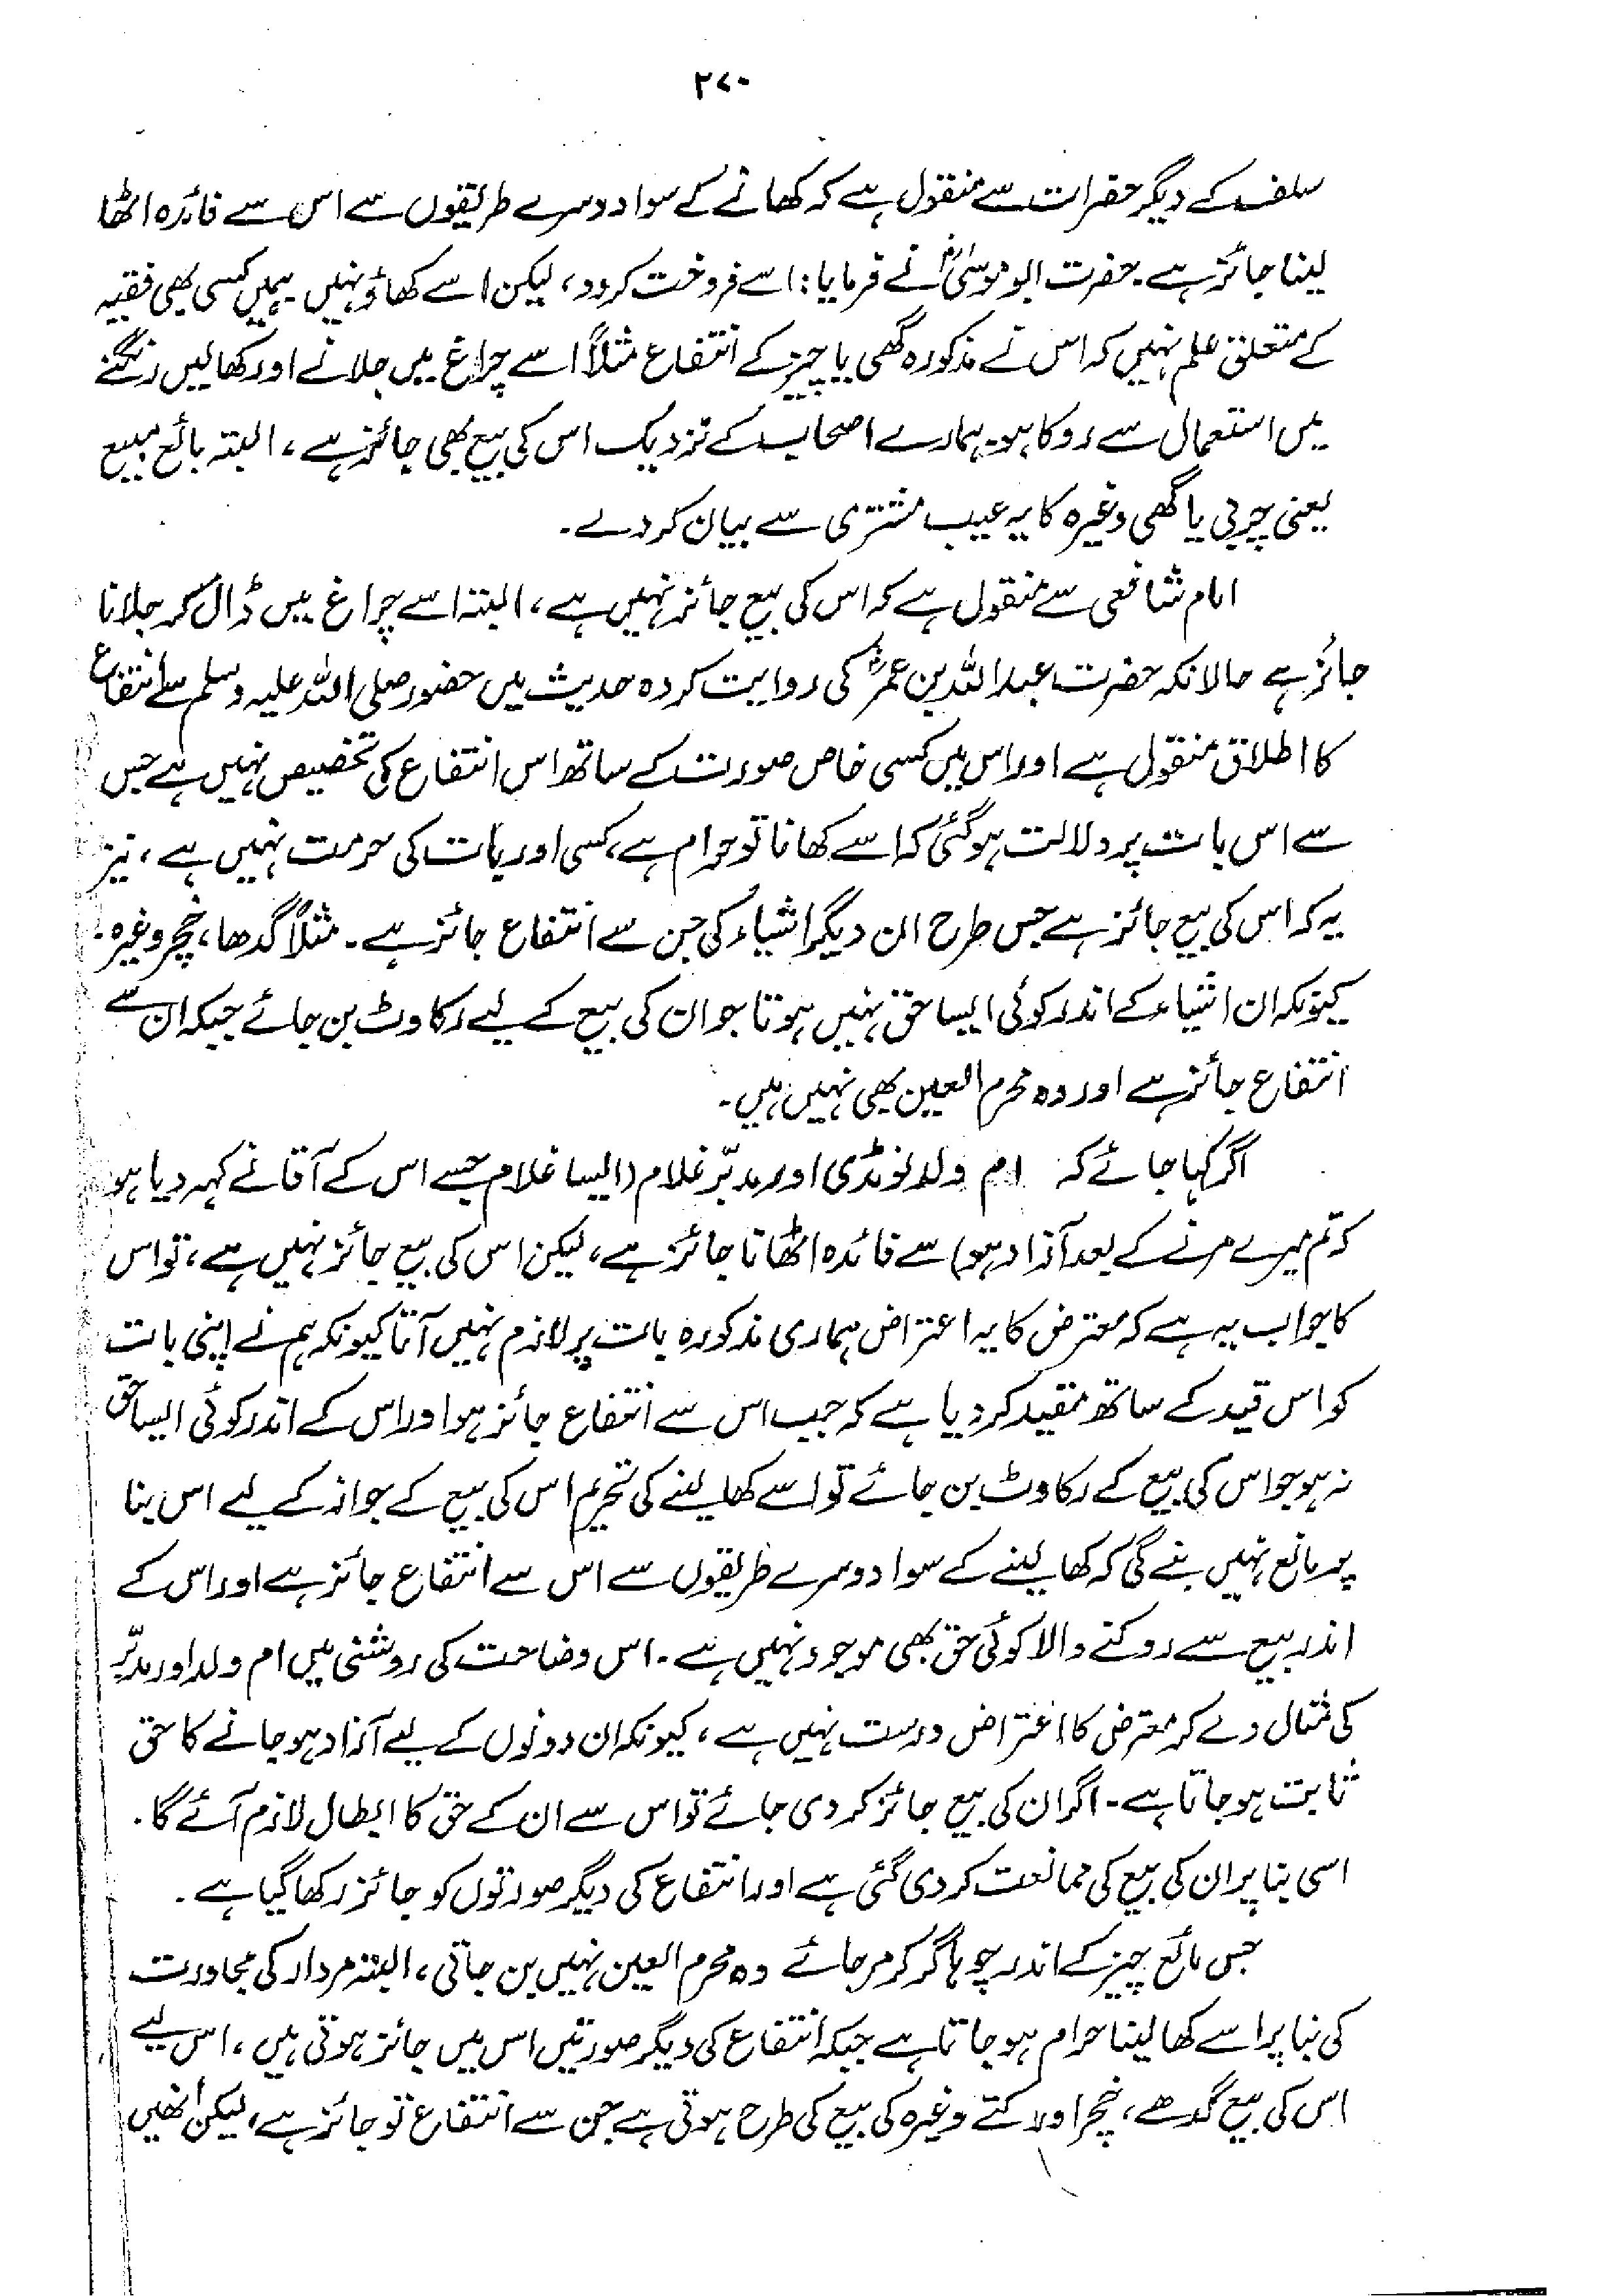 ۲۷۰
سلف کے دیگر حضرات سے منقول ہے کہ کھانے کے سوا دوسرے طریقوں سے اس سے فائدہ اٹھا
لینا جائز ہے۔ حضرت ابو موسیٰؓ نے فرمایا: اسے فروخت کر دو، لیکن اسے کھاؤ نہیں ہمیں کسی بھی فقیہ
کے متعلق علم نہیں کہ اس نے مذکورہ گھی یا چیز کے انتفاع مثلاً اسے چراغ میں جلانے اور کھالیں رنگنے
میں استعمال سے روکا ہو۔ ہمارے اصحاب کے نزدیک اس کی بیع بھی جائز ہے، البتہ بائع مبیع
یعنی چربی یا گھی وغیرہ کا یہ عیب مشتری سے بیان کر دے۔
امام شافعی سے منقول ہے کہ اس کی بیع جائز نہیں ہے، البتہ اسے چراغ میں ڈال کر جلانا
جائز ہے حالانکہ حضرت عبداللہ بن عمرؓ کی روایت کردہ حدیث میں حضور صلی اللہ علیہ وسلم سے انتفاع
کا اطلاق منقول ہے اور اس میں کسی خاص صورت کے ساتھ اس انتفاع کی تخصیص نہیں ہے جس
سے اس بات پر دلالت ہوگئی کہ اسے کھانا تو حرام ہے، کسی اور بات کی حرمت نہیں ہے، نیز
یہ کہ اس کی بیع جائز ہے جس طرح ان دیگر اشیاء کی جن سے انتفاع جائز ہے۔ مثلاً گدھا، خچر وغیرہ۔
کیونکہ ان اشیاء کے اندر کوئی ایسا حق نہیں ہوتا جو ان کی بیع کے لیے رکاوٹ بن جائے جبکہ ان سے
انتفاع جائز ہے اور وہ محرم العین بھی نہیں ہیں۔
اگر کہا جائے کہ ام ولد لونڈی اور مدبّر غلام (ایسا غلام جسے اس کے آقا نے کہہ دیا ہو
کہ تم میرے مرنے کے بعد آزاد ہو) سے فائدہ اٹھانا جائز ہے، لیکن اس کی بیع جائز نہیں ہے، تو اس
کا جواب یہ ہے کہ معترض کا یہ اعتراض ہماری مذکورہ بات پر لازم نہیں آتا کیونکہ ہم نے اپنی بات
کو اس قید کے ساتھ مقید کر دیا ہے کہ جب اس سے انتفاع جائز ہو اور اس کے اندر کوئی ایسا حق
نہ ہو جو اس کی بیع کے رکاوٹ بن جائے تو اسے کھا لینے کی تحریم اس کی بیع کے جواز کے لیے اس بنا
پر مانع نہیں بنے گی کہ کھا لینے کے سوا دوسرے طریقوں سے اس سے انتفاع جائز ہے اور اس کے
اندر بیع سے روکنے والا کوئی حق بھی موجود نہیں ہے۔ اس وضاحت کی روشنی میں ام ولد اور مدبّر
کی مثال دے کر معترض کا اعتراض درست نہیں ہے، کیونکہ ان دونوں کے لیے آزاد ہو جانے کا حق
ثابت ہو جاتا ہے۔ اگر ان کی بیع جائز کر دی جائے تو اس سے ان کے حق کا ابطال لازم آئے گا۔
اسی بنا پر ان کی بیع کی ممانعت کر دی گئی ہے اور انتفاع کی دیگر صورتوں کو جائز رکھا گیا ہے۔
جس مائع چیز کے اندر چوہا گر کر مر جائے وہ محرم العین نہیں بن جاتی، البتہ مردار کی مجاورت
کی بنا پر اسے کھا لینا حرام ہو جاتا ہے جبکہ انتفاع کی دیگر صورتیں اس میں جائز ہوتی ہیں، اس لیے
اس کی بیع گدھے، خچر اور کتے وغیرہ کی بیع کی طرح ہوتی ہے جن سے انتفاع تو جائز ہے، لیکن انھیں